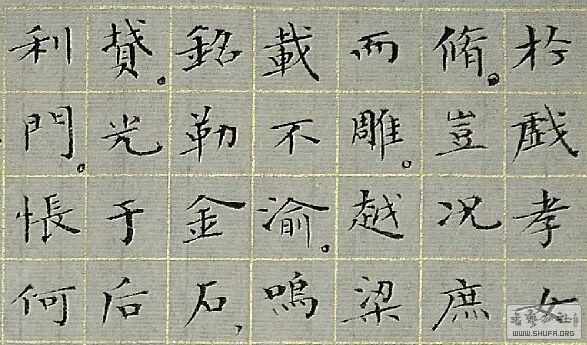 扵戲孝女
脩。豈況庶
而雕。越梁
載不渝。嗚
銘勒金石,
賛。光于后
利門。悵何
WWW.SHUFA.ORG